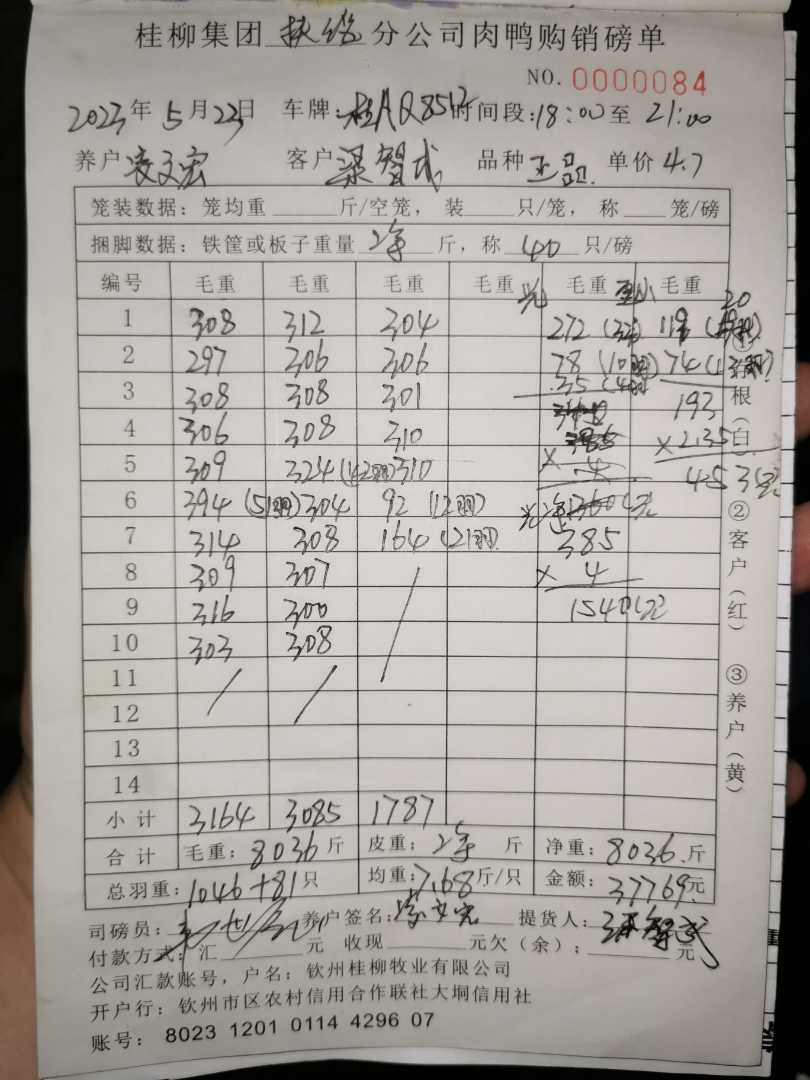 桂柳集团扶绥分公司肉鸭购销磅单
NO. 0000084
2023年5月23日 车牌:桂AQ85 时间段:18:00至21:00
养户凌文宏 客户梁智武 品种正品 单价4.7
笼装数据: 笼均重 斤/空笼, 装 只/笼, 称 笼/磅
捆脚数据: 铁筐或板子重量 净 斤, 称 40 只/磅
编号 毛重 毛重 毛重 毛重 毛重 毛重
光 小 20
1 308 312 304 272 119
2 297 306 306 78 (10羽) 74
3 308 308 301 35 (4羽) 193
4 306 308 310 ×2.35
5 309 324 (42羽) 310 ×4 453元
6 394 (51羽) 304 92 (12羽) 光
7 314 308 164 (21羽) 385
8 309 307 × 4
9 316 300 1540元
10 303 308
11
12
13
14
小计 3164 3085 1787
合计 毛重: 8036斤 皮重: 净 斤 净重: 8036.斤
总羽重: 1046+81只 均重: 7.68斤/只 金额: 37769元
司磅员: 养户签名: 凌文宏 提货人: 梁智武
付款方式: 汇 元 收现 元欠(余): 元
公司汇款账号, 户名: 钦州桂柳牧业有限公司
开户行: 钦州市区农村信用合作联社大垌信用社
账号: 8023 1201 0114 4296 07
①根(白) ②客户(红) ③养户(黄)